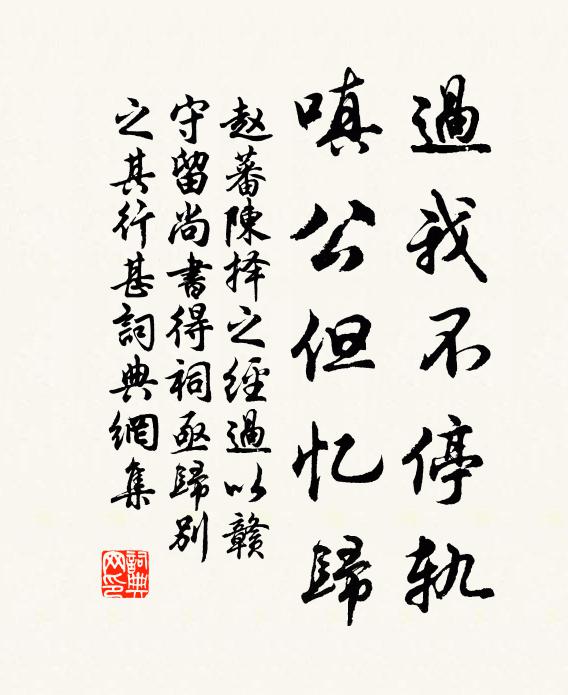 過我不停軌
嗔公但忆歸
赵蕃陳择之經過以贛
守留尚書得祠亟歸别
之其行甚詞典網集
詞典网印